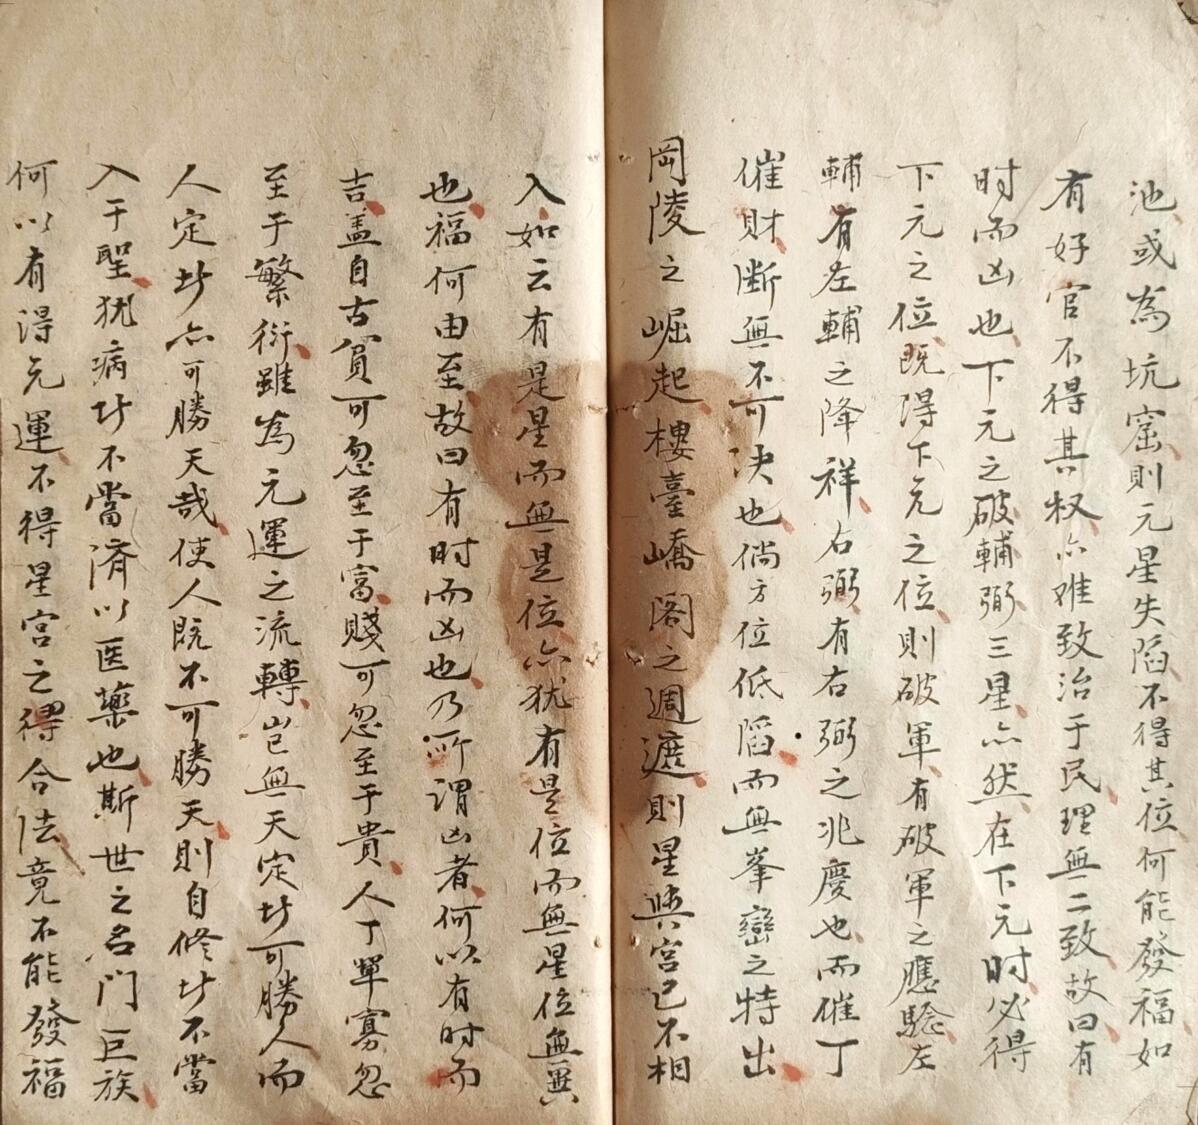 池或為坑窟則元星失陷不得其位何能發福如
有好官不得其权亦难致治于民理無二致故曰有
时而凶也下元之破輔弼三星亦然在下元时必得
下元之位既得下元之位則破軍有破軍之應驗左
輔有左輔之降祥右弼有右弼之兆慶也而催丁
催財断無不可决也倘方位低陷而無峯巒之特出
岡陵之崛起樓臺嶠阁之週遮則星與宮已不相
入如云有是星而無是位亦犹有是位而無星位無異
也福何由至故曰有时而凶也乃所謂凶者何以有时而
吉盖自古貧可忽至于富賤可忽至于貴人丁單寡忽
至于繁衍雖為元運之流轉岂無天定时可勝人而
人定时亦可勝天哉使人既不可勝天則自修时不當
入于聖犹病时不當济以医藥也斯世之名门巨族
何以有得元運不得星宮之得合法竟不能發福